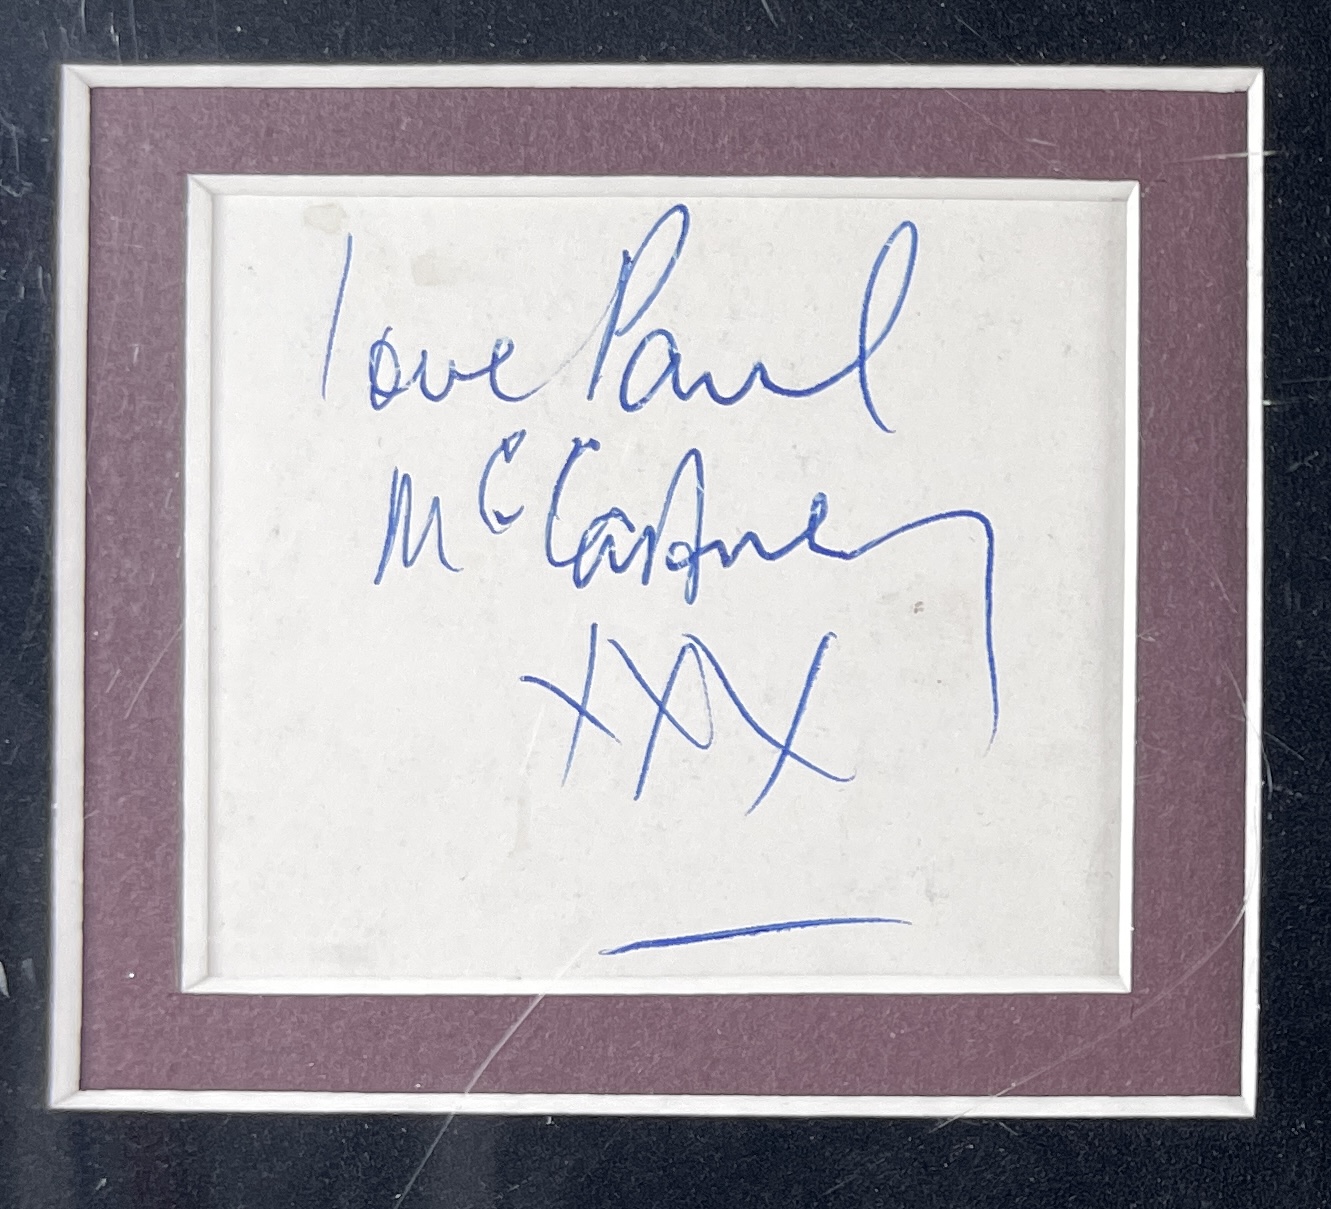 love Paul
McCartney
XXX